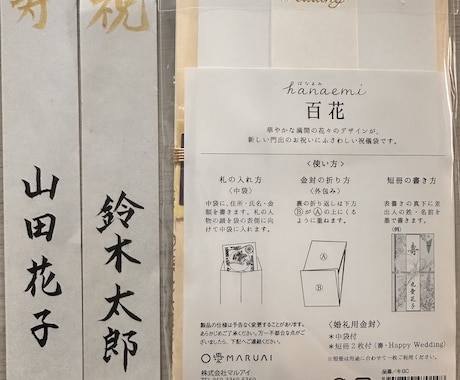 寿
山田花子
祝
鈴木太郎
Wedding
はなえみ
hanaemi
百花
華やかな満開の花々のデザインが、
新しい門出のお祝いにふさわしい祝儀袋です。
〈使い方〉
札の入れ方
〈中袋〉
中袋に、住所・氏名・金
額を書きます。札の人
物の顔を袋の表側に向
けて中袋に入れます。
金封の折り方
〈外包み〉
裏の折り返しは下方
Ⓑが Ⓐの上にくる
ように重ねます。
Ⓐ
Ⓑ
短冊の書き方
表書きの真下に差
出人の姓・名前を
墨で書きます。
(例)
寿
製品の仕様は予告なく変更することがあります。
あらかじめご了承下さい。万一不都合な点が
ございましたら、下記へご連絡ください。
MARUAI
株式会社マルアイ
〈婚礼用金封〉
*中袋付
*短冊2枚付(寿・Happy Wedding)
※短冊は用途に合わせて一枚ご利用ください。